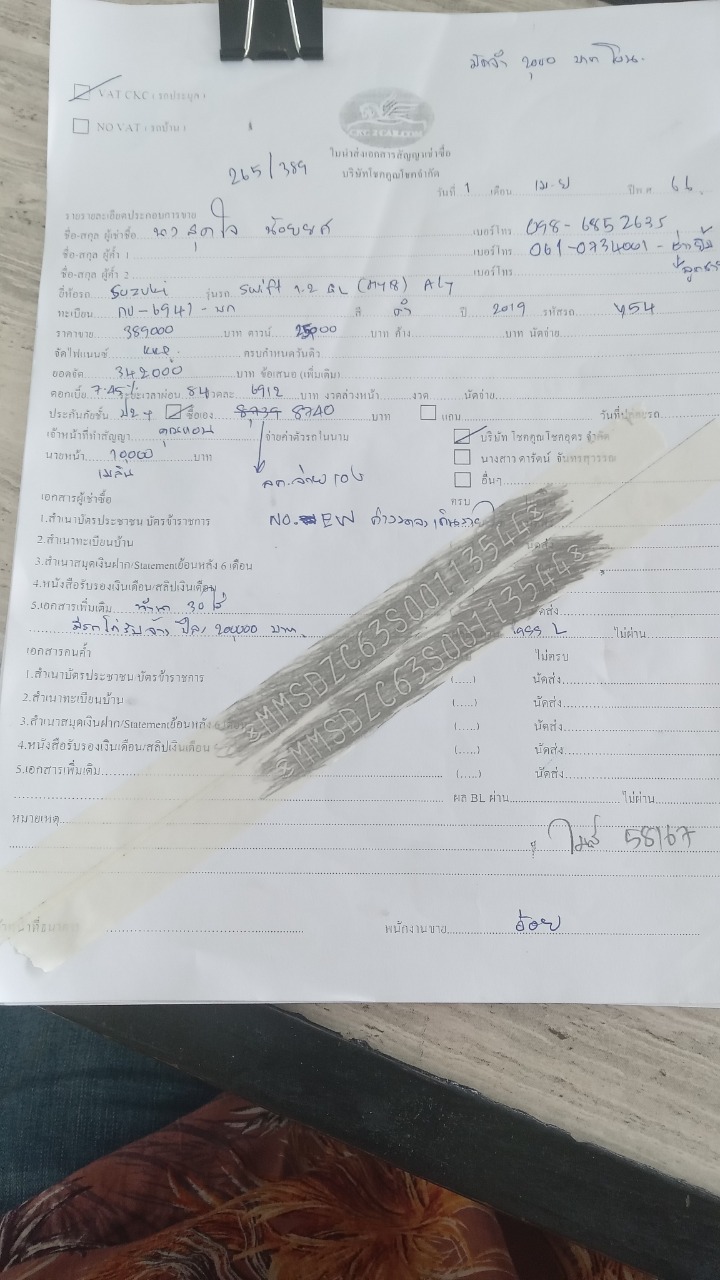 มัดจำ 2000 บาท โอน.
VAT CKC ( รถประมูล )
NO VAT ( รถบ้าน )
CKC 2 CAR.COM
ใบนำส่งเอกสารสัญญาเช่าซื้อ
บริษัทโชคคูณโชคจำกัด
265/389
วันที่ 1 เดือน เม-ย ปี ค.ศ 66
รายรายละเอียดประกอบการขาย
ชื่อ-สกุล ผู้เช่าซื้อ นาง สุดใจ น้อยยศ เบอร์โทร 098-6852635
ชื่อ-สกุล ผู้ค้ำ 1 เบอร์โทร 061-0734001 -
ชื่อ-สกุล ผู้ค้ำ 2 เบอร์โทร
ยี่ห้อรถ Suzuki รุ่นรถ Swift 1.2 GL (MY18) A/T
ทะเบียน กบ-6941- สี ดำ ปี 2019 รหัสรถ Y54
ราคาขาย 389000 บาท ดาวน์ บาท ค้าง บาท นัดจ่าย
จัดไฟแนนซ์ KKP. ครบกำหนดวันคิว
ยอดจัด 342000 บาท ข้อเสนอ (เพิ่มเติม)
ดอกเบี้ย 7.45% ระยะเวลาผ่อน 84 งวดละ 6912 บาท งวดล่วงหน้า งวด นัดจ่าย
ประกันภัยชั้น ป2+ ซื้อเอง 8739 8740 บาท แถม วันที่
เจ้าหน้าที่ทำสัญญา จ่ายค่าตัวรถในนาม บริษัท โชคคูณโชคอุดร จำกัด
นายหน้า 10000 บาท นางสาว ดารัตน์ จันทรสุวรรณ
เมลิน ลค.จ่ายเอง อื่นๆ
เอกสารผู้เช่าซื้อ ครบ
1.สำเนาบัตรประชาชน บัตรข้าราชการ NO. EW
2.สำเนาทะเบียนบ้าน นัดส่ง
3.สำเนาสมุดเงินฝาก/Statementย้อนหลัง 6 เดือน
4.หนังสือรับรองเงินเดือน/สลิปเงินเดือน
5.เอกสารเพิ่มเติม ทำนา 30 ไร่ นัดส่ง
มีรถไถรับจ้าง ปีละ 200000 บาท. ไม่ผ่าน
&MMSDZC63S00113544&
&MMSDZC63S00113544&
เอกสารคนค้ำ ไม่ครบ
1.สำเนาบัตรประชาชน บัตรข้าราชการ (.....) นัดส่ง
2.สำเนาทะเบียนบ้าน (.....) นัดส่ง
3.สำเนาสมุดเงินฝาก/Statementย้อนหลัง 6 เดือน (.....) นัดส่ง
4.หนังสือรับรองเงินเดือน/สลิปเงินเดือน (.....) นัดส่ง
5.เอกสารเพิ่มเติม (.....) นัดส่ง
ผล BL ผ่าน ไม่ผ่าน
หมายเหตุ
ไมล์ 58167
พนักงานขาย อ้อย